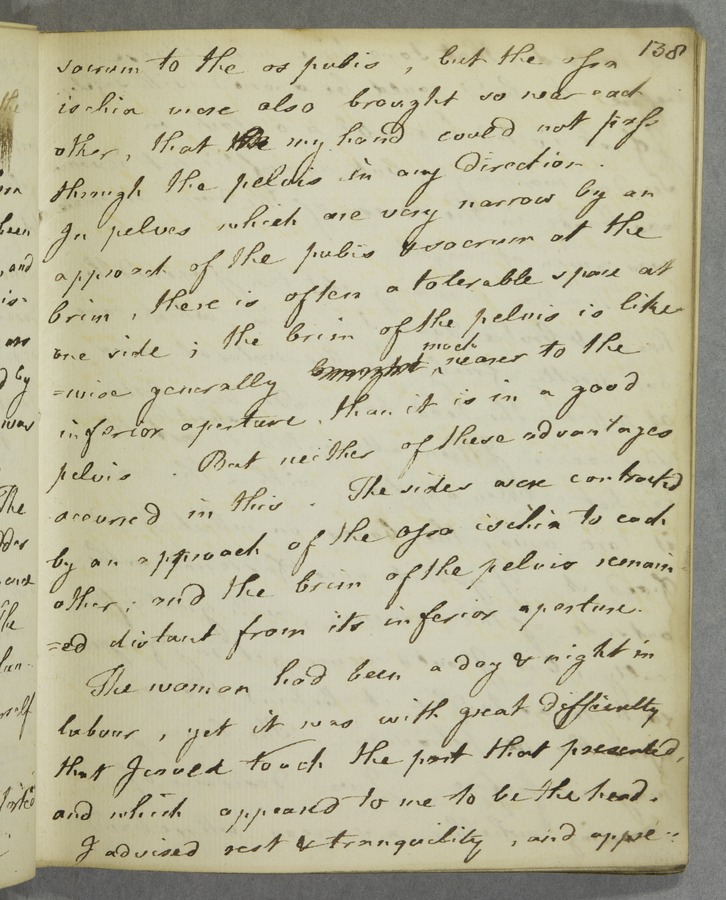 138
sacrum to the os pubis , but the ossa
ischia were also brought so near each
other, that the my hand could not pass
through the pelvis in any direction .
In pelves which are very narrow by an
approach of the pubis & sacrum at the
brim , there is often a tolerable space at
one side ; the brim of the pelvis is like
=wise generally brought much nearer to the
inferior aperture, than it is in a good
pelvis . But neither of these advantages
occurred in this . The sides were contracted
by an approach of the ossa ischia to each
other; and the brim of the pelvis remain
=ed distant from its inferior aperture.
The woman had been a day & night in
labour , yet it was with great difficulty
that I could touch the part that presented,
and which appeared to me to be the head.
I advised rest & tranquility , and appre=